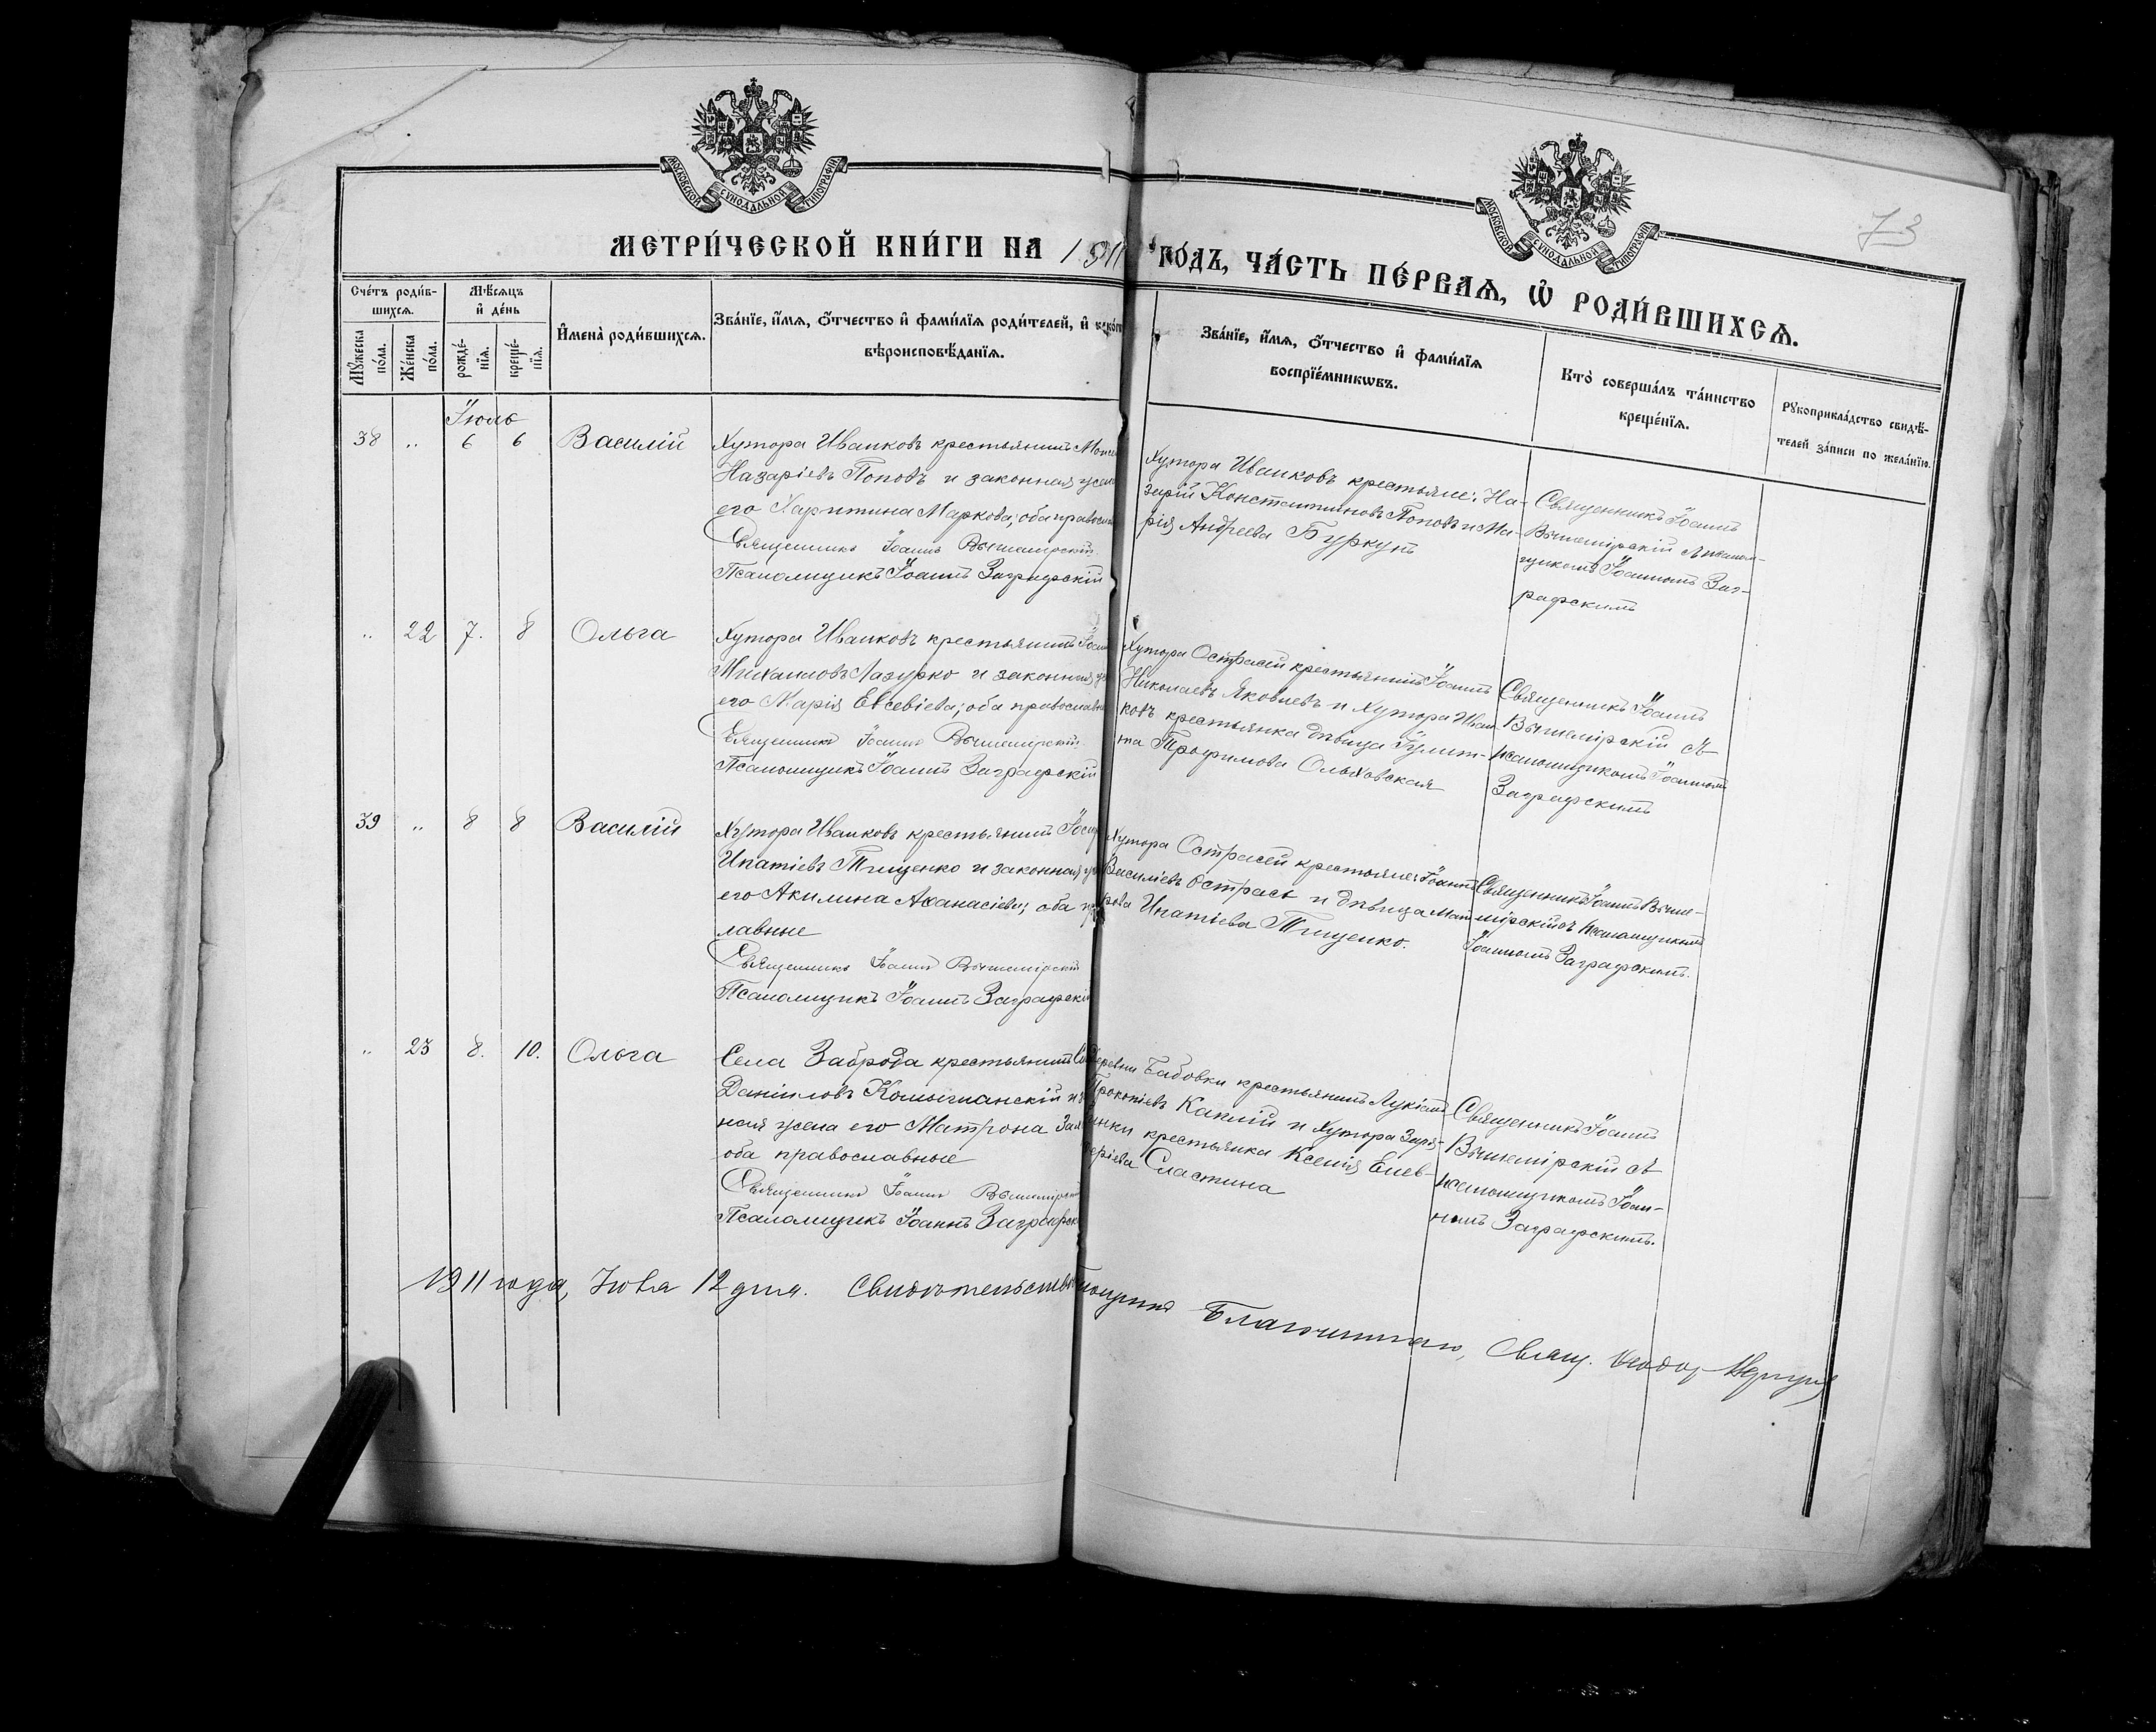 МОСКОВСКОЙ СѴНОДАЛЬНОЙ ТИПОГРАФІИ
МОСКОВСКОЙ СѴНОДАЛЬНОЙ ТИПОГРАФІИ
73
МЕТРИ́ЧЕСКОЙ КНИ́ГИ НА 1911 ГО́ДЪ, ЧА́СТЬ ПЕ́РВАѦ, Ѡ҆ РОДИ́ВШИХСѦ.
Сче́тъ роди́в-
шихсѧ.
Мꙋ́жеска
по́ла.
Же́нска
по́ла.
Мѣ́сѧцъ
и҆ де́нь
рожде́-
нїѧ.
креще́-
нїѧ.
И҆мена̀ роди́вшихсѧ.
Зва́нїе, и҆́мѧ, ѻ҆́тчество и҆ фами́лїѧ роди́телей, и҆ како́гѡ
вѣроисповѣ́данїѧ.
Зва́нїе, и҆́мѧ, ѻ҆́тчество и҆ фами́лїѧ
воспрїе́мникѡвъ.
Кто̀ соверша́лъ та́инство
креще́нїѧ.
Рꙋкоприкла́дство свидѣ́-
телей за́писи по жела́нїю.
Іюль
38 „ 6 6 Василій
Хутора Иванковъ крестьянинъ
Назаріевъ Поповъ и законная жена
его Харитина Маркова; оба православ
Священникъ Іоаннъ Вышемірскій
Псаломщикъ Іоаннъ Заграфскій
Хутора Иванковъ крестьяне: На-
зарій Константиновъ Поповъ и Ма-
рія Андреева Буркунъ
Священникъ Іоаннъ
Вышемірскій съ псалом-
щикомъ Іоанномъ Заг-
рафскимъ
„ 22 7. 8 Ольга
Хутора Иванковъ крестьянинъ Іоан
Михаиловъ Лазурко и законная же
его Марія Евсевіева; оба православн
Священникъ Іоаннъ Вышемірскій
Псаломщикъ Іоаннъ Заграфскій
Хутора Острасей крестьянинъ Іоаннъ
Николаевъ Яковлевъ и Хутора Иван
ковъ крестьянка дѣвица Іулит-
та Трофимова Ольховская
Священникъ Іоаннъ
Вышемірскій съ
псаломщикомъ Іоанномъ
Заграфскимъ
39 „ 8 8 Василій
Хутора Иванковъ крестьянинъ Іосиф
Ипатіевъ Тищенко и законная же
его Акилина Аѳанасіева; оба пра
лавные
Священникъ Іоаннъ Вышемірскій
Псаломщикъ Іоаннъ Заграфскій
Хутора Острасей крестьяне: Іоаннъ
Василіевъ Острась и дѣвица Мат
рова Ипатіева Тищенко.
Священникъ Іоаннъ Выше-
мірскій съ псаломщикомъ
Іоанномъ Заграфскимъ.
„ 23 8. 10. Ольга
Села Заброда крестьянинъ
Даніиловъ Комычанскій и з
ная жена его Матрона
оба православные
Священникъ Іоаннъ Вышемірскій
Псаломщикъ Іоаннъ Заграфскій
Деревни Бабовки крестьянинъ Лукіанъ
Прокопіевъ Каплій и Хутора
инки крестьянка Ксенія Елев-
ѳеріева Сластина
Священникъ Іоаннъ
Вышемірскій съ
псаломщикомъ Іоан-
номъ Заграфскимъ.
1911 года, Іюля 12 дня. Свидѣтельствовалъ Благочинный, Свящ. Ѳеодоръ